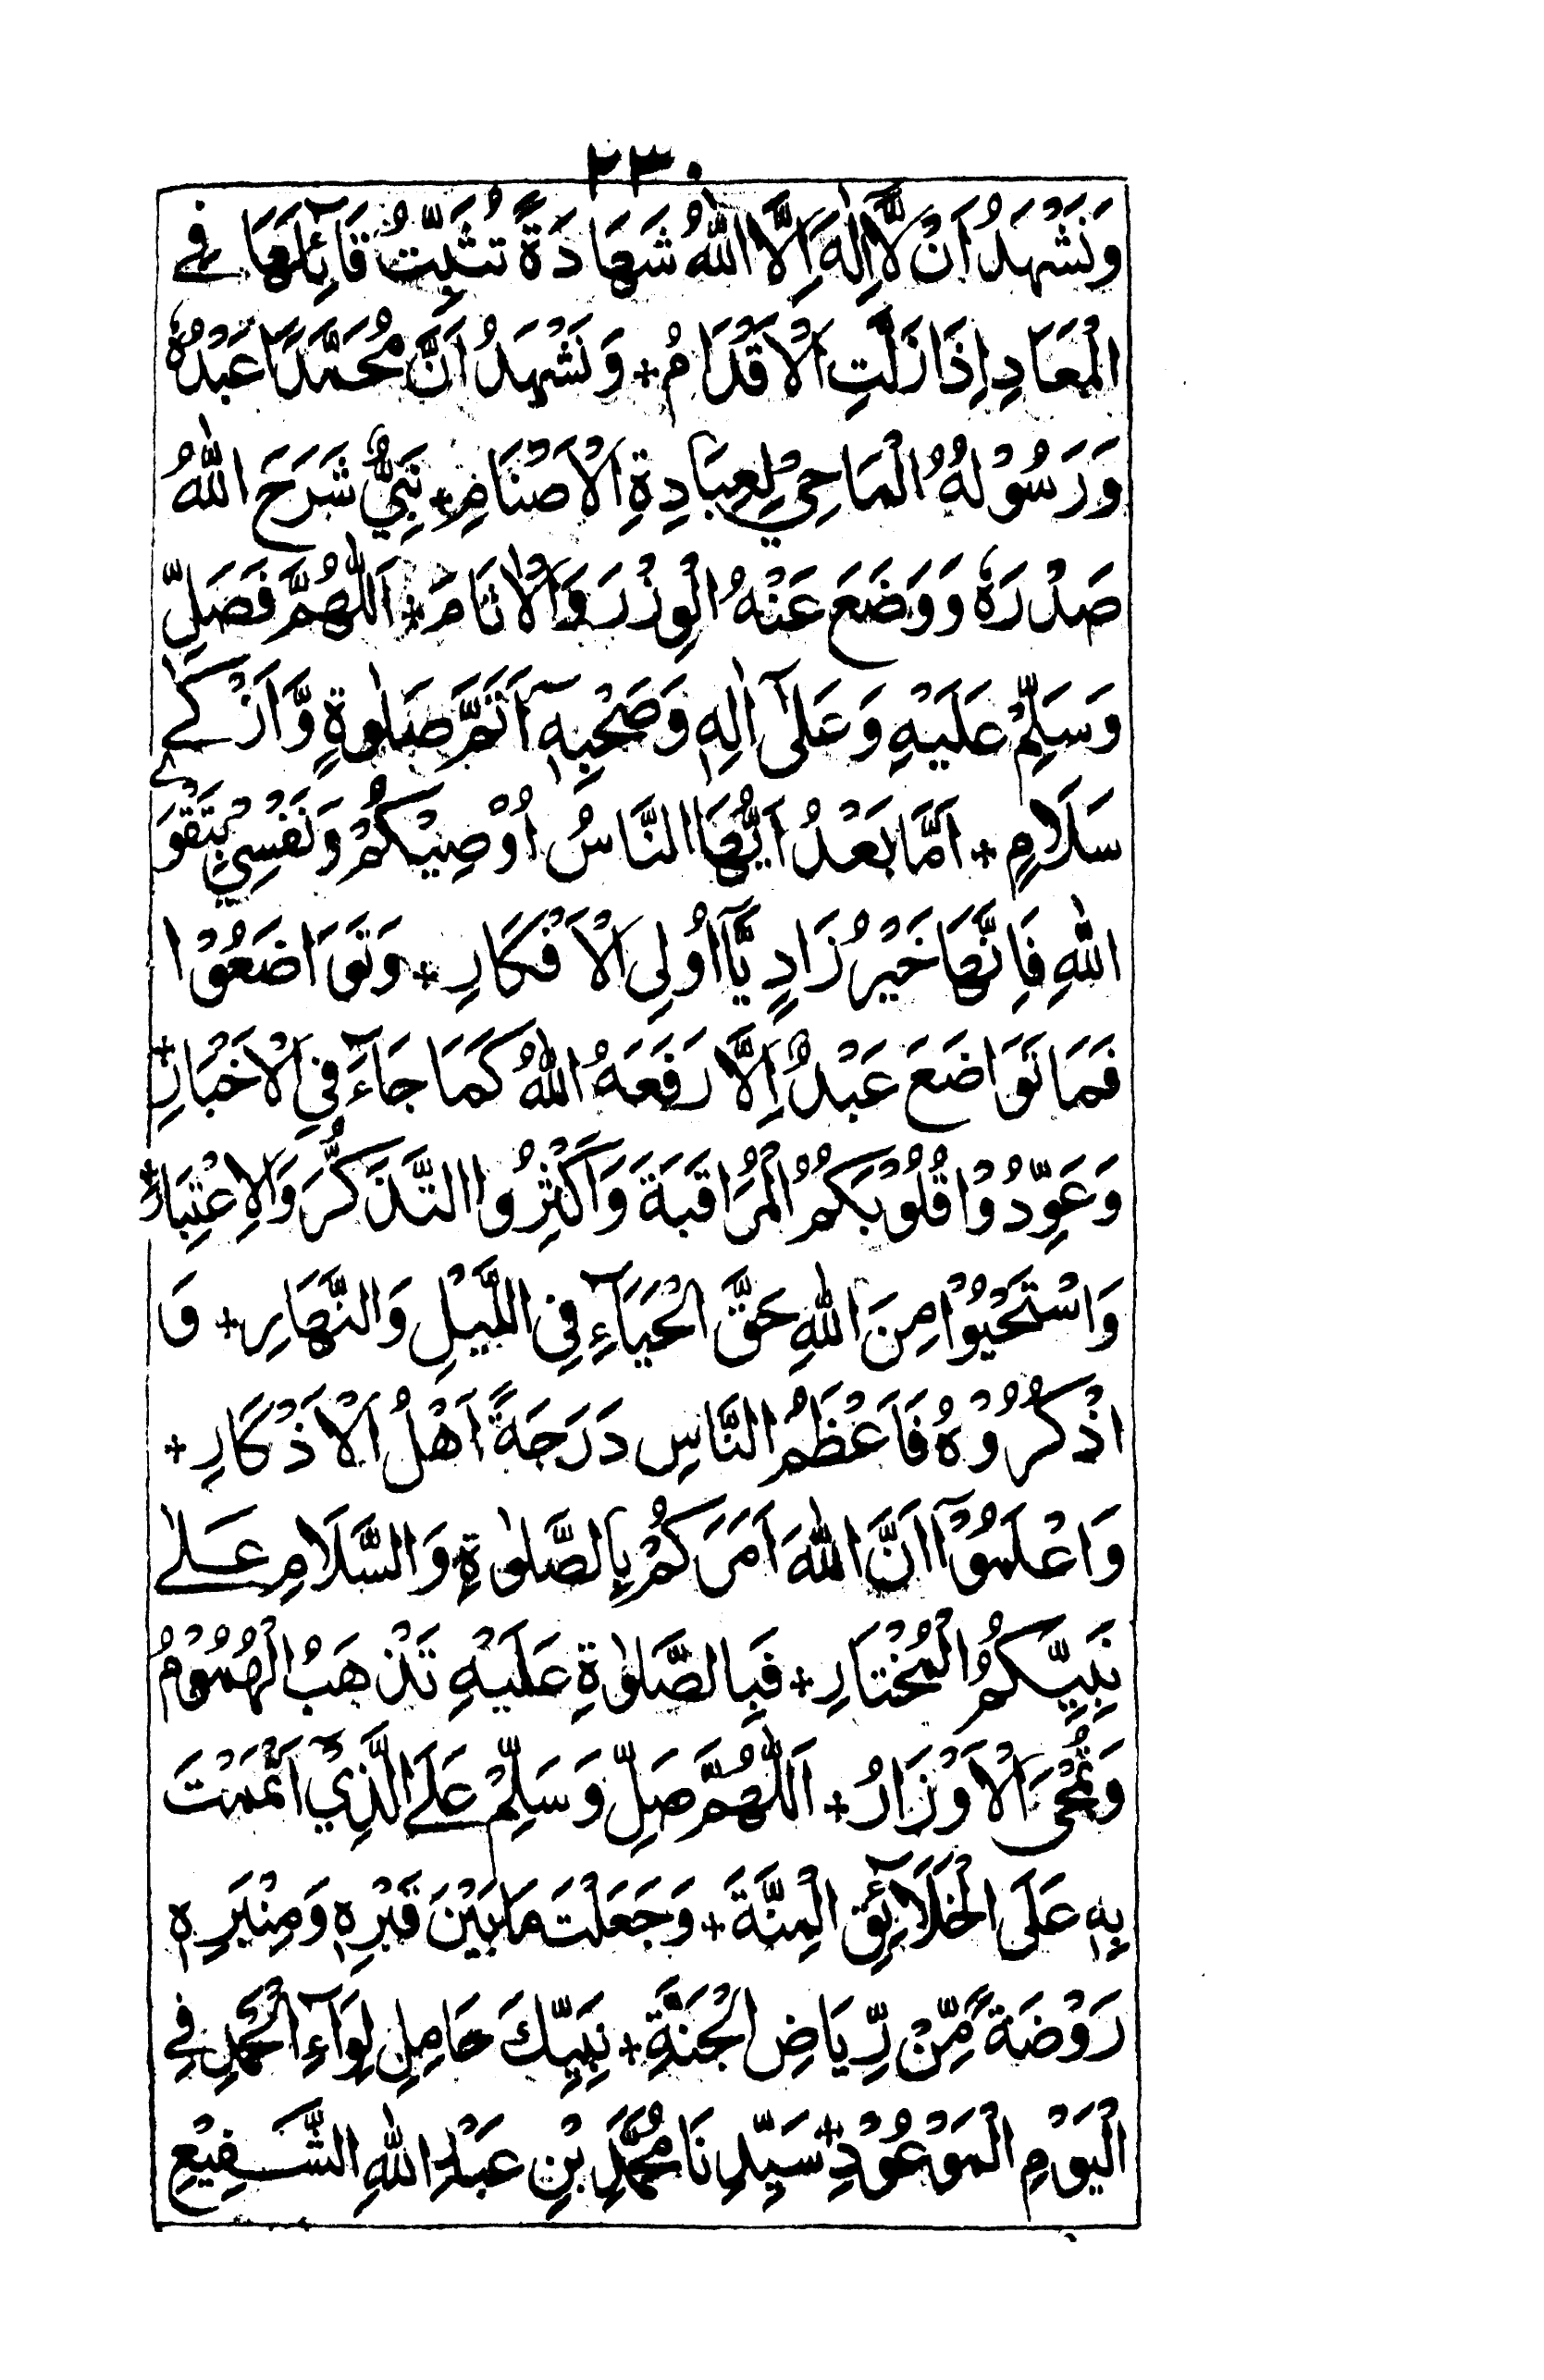 ٢٣٠
وَنَشْهَدُ اَنْ لَّا اِلٰهَ اِلَّا اللّٰهُ شَهَادَةً تُثَبِّتُ قَآئِلَهَا فِے
الْمَعَادِ اِذَا زَلَّتِ الْاَقْدَامُ + وَنَشْهَدُ اَنَّ مُحَمَّدًا عَبْدُهٗ
وَرَسُوْلُهُ الْمَاحِيْ لِعِبَادَةِ الْاَصْنَامِ + نَبِيٌّ شَرَحَ اللّٰهُ
صَدْرَهٗ وَوَضَعَ عَنْهُ الْوِزْرَ وَالْاٰثَامَ + اَللّٰهُمَّ فَصَلِّ
وَسَلِّمْ عَلَيْهِ وَعَلٰٓى اٰلِهٖ وَصَحْبِهٖٓ اَتَمَّ صَلٰوةٍ وَّاَزْكٰے
سَلَامٍ + اَمَّا بَعْدُ اَيُّهَا النَّاسُ اُوْصِيْكُمْ وَنَفْسِيْ بِتَقْوَے
اللّٰهِ فَاِنَّهَا خَيْرُ زَادٍ يَّآ اُولِى الْاَفْكَارِ + وَتَوَاضَعُوْا
فَمَا تَوَاضَعَ عَبْدٌ اِلَّا رَفَعَهُ اللّٰهُ كَمَا جَآءَ فِي الْاَخْبَارِ +
وَعَوِّدُوْا قُلُوْبَكُمُ الْمُرَاقَبَةَ وَاَكْثِرُوا التَّذَكُّرَ وَالْاِعْتِبَارَ +
وَاسْتَحْيُوْا مِنَ اللّٰهِ حَقَّ الْحَيَآءِ فِي اللَّيْلِ وَالنَّهَارِ + وَ
اذْكُرُوْهُ فَاَعْظَمُ النَّاسِ دَرَجَةً اَهْلُ الْاَذْكَارِ +
وَاعْلَمُوْٓا اَنَّ اللّٰهَ اَمَرَكُمْ بِالصَّلٰوةِ وَالسَّلَامِ عَلٰے
نَبِيِّكُمُ الْمُخْتَارِ + فَبِالصَّلٰوةِ عَلَيْهِ تَذْهَبُ الْهُمُوْمُ
وَتُمْحَى الْاَوْزَارُ + اَللّٰهُمَّ صَلِّ وَسَلِّمْ عَلَے الَّذِيْٓ اَتْمَمْتَ
بِهٖ عَلَى الْخَلَآئِقِ الْمِنَّةَ + وَجَعَلْتَ مَا بَيْنَ قَبْرِهٖ وَمِنْبَرِهٖ
رَوْضَةً مِّنْ رِّيَاضِ الْجَنَّةِ + نَبِيِّكَ حَامِلِ لِوَآءِ الْحَمْدِ فِي
الْيَوْمِ الْمَوْعُوْدِ + سَيِّدِنَا مُحَمَّدِ بْنِ عَبْدِ اللّٰهِ الشَّفِيْعِ